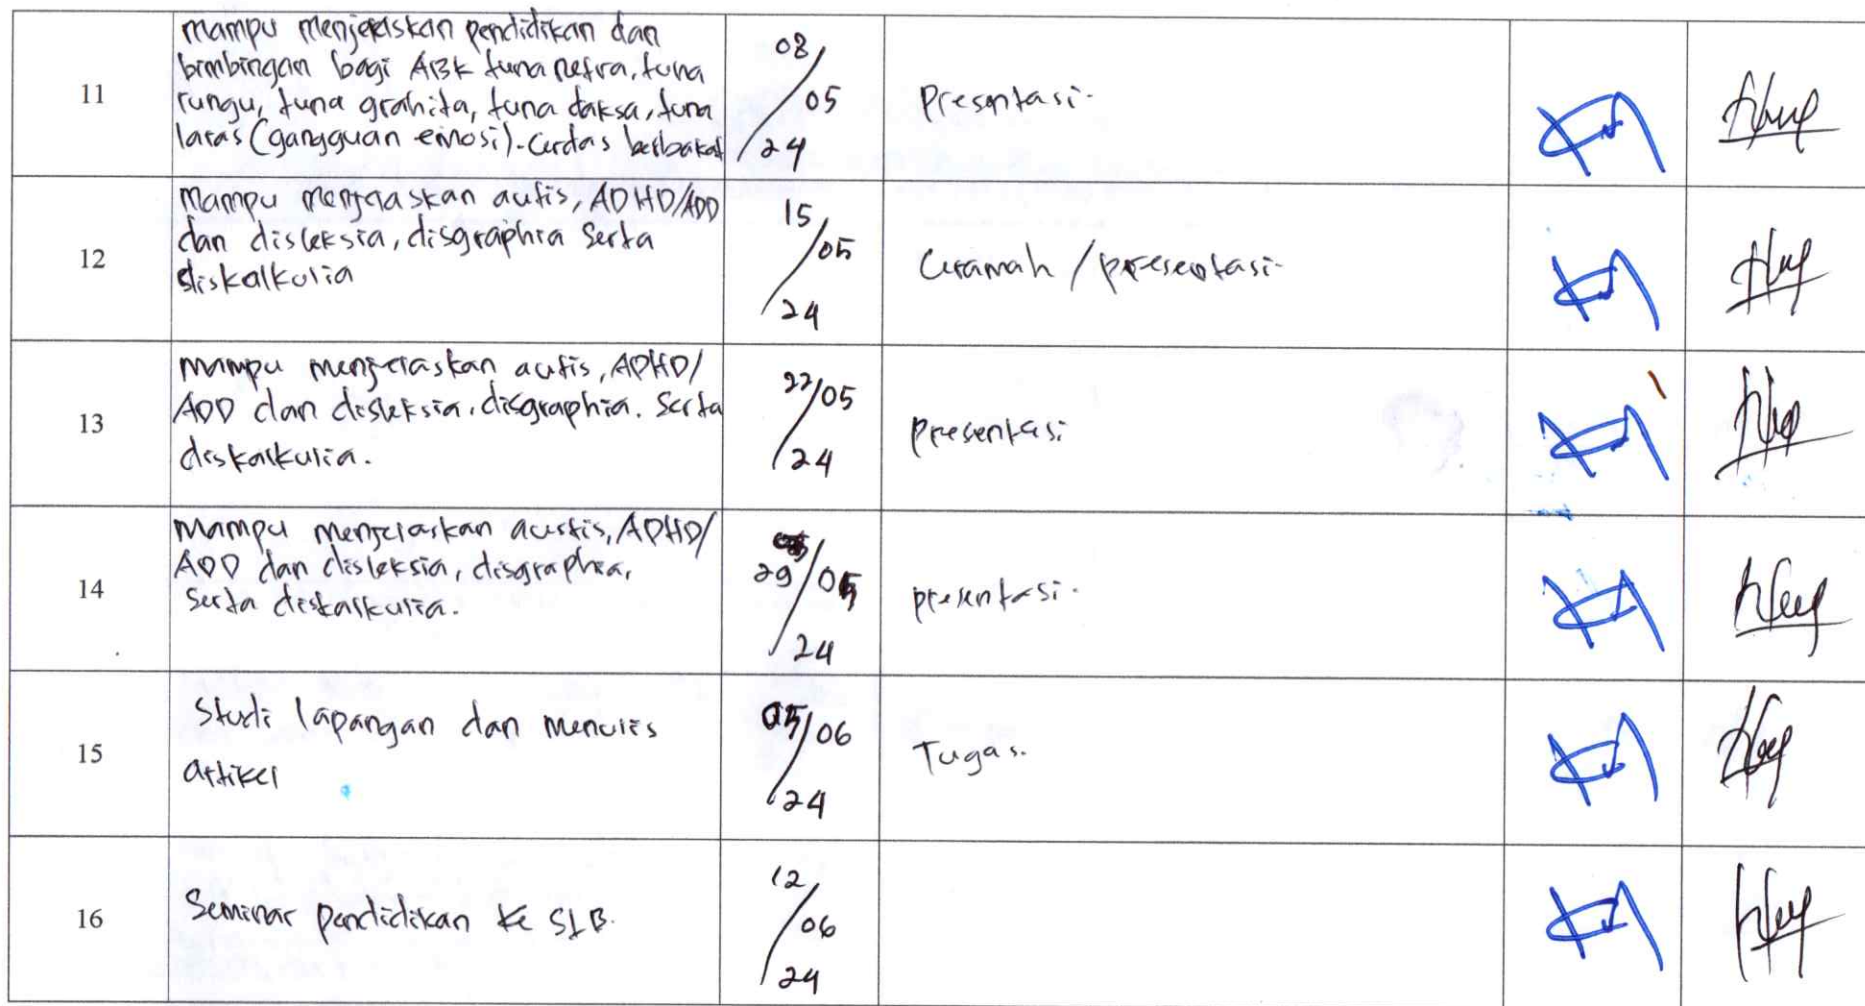 11
mampu menjelaskan pendidikan dan
bimbingan bagi ABK tuna netra, tuna
rungu, tuna grahita, tuna daksa, tuna
laras (gangguan emosi). Cerdas berbakat
08/05/24
Presentasi.
12
Mampu menjelaskan autis, ADHD/ADD
dan disleksia, disgraphia Serta
diskalkulia
15/05/24
Ceramah / presentasi
13
mampu menjelaskan autis, ADHD/
ADD dan disleksia, disgraphia. Serta
diskalkulia.
22/05/24
Presentasi
14
Mampu menjelaskan austis, ADHD/
ADD dan disleksia, disgraphia,
Serta diskalkulia.
29/05/24
presentasi.
15
Studi lapangan dan menulis
artikel
05/06/24
Tugas.
16
Seminar pendidikan ke SLB.
12/06/24